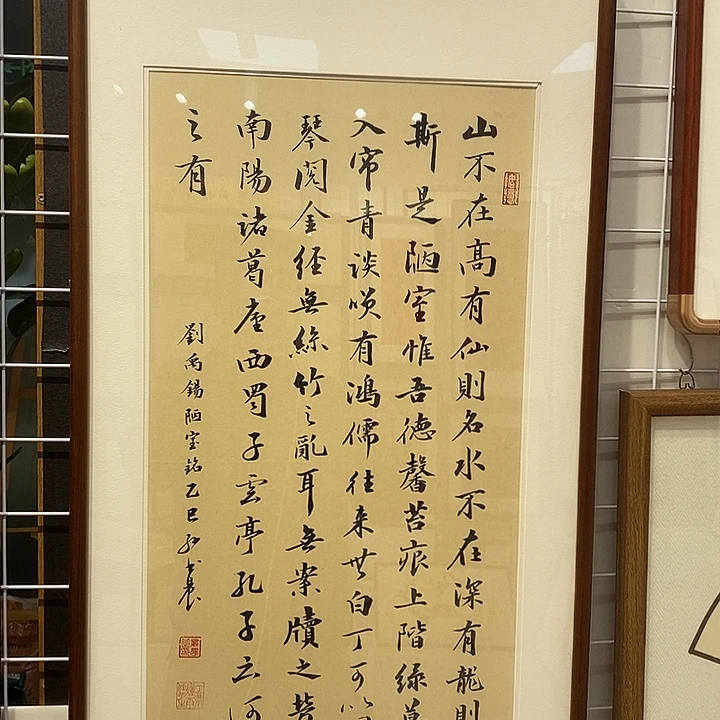 山不在高有仙則名水不在深有龍則
斯是陋室惟吾德馨苔痕上階綠草
入帘青談笑有鴻儒往来無白丁可以調
琴閱金經無絲竹之亂耳無案牘之勞
南陽諸葛廬西蜀子雲亭孔子云何
之有
劉禹錫陋室銘乙巳